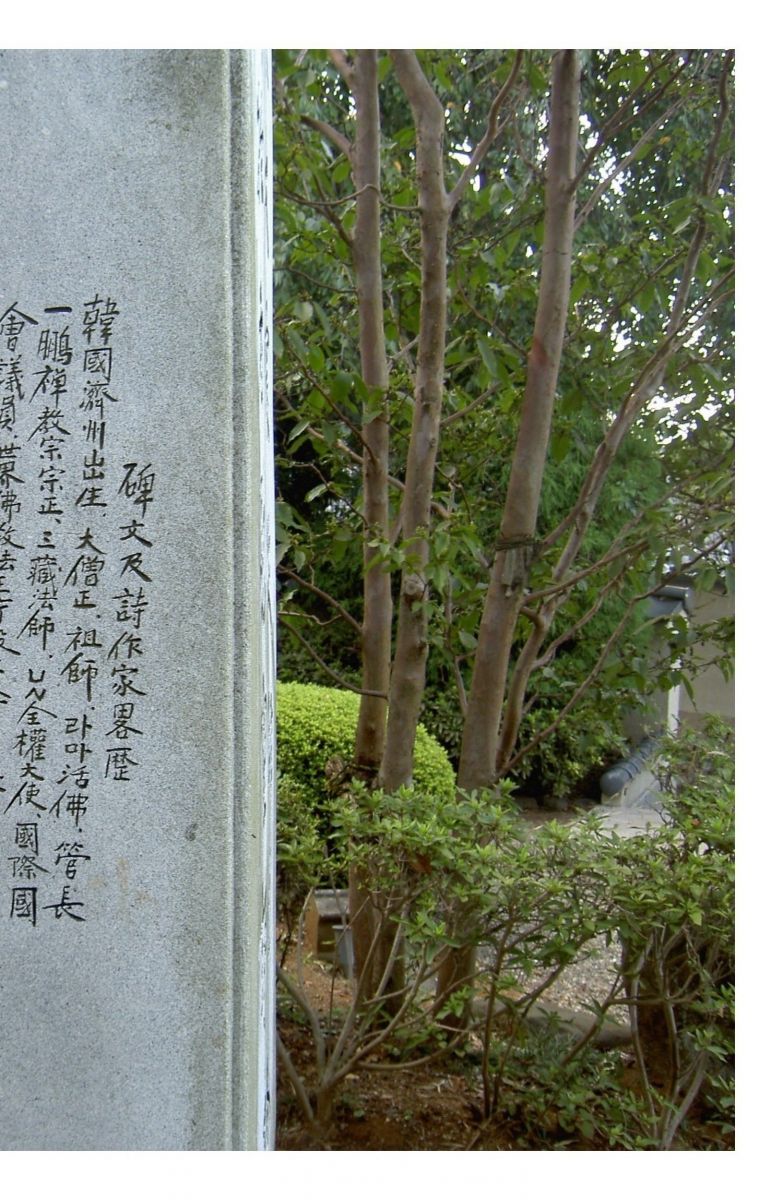 碑文及詩作家畧歷
韓國濟州出生、大僧正、祖師、라마活佛、管長
一鵬禅教宗宗正、三藏法師、UN全權大使、國際國
會議員、世界佛教法王